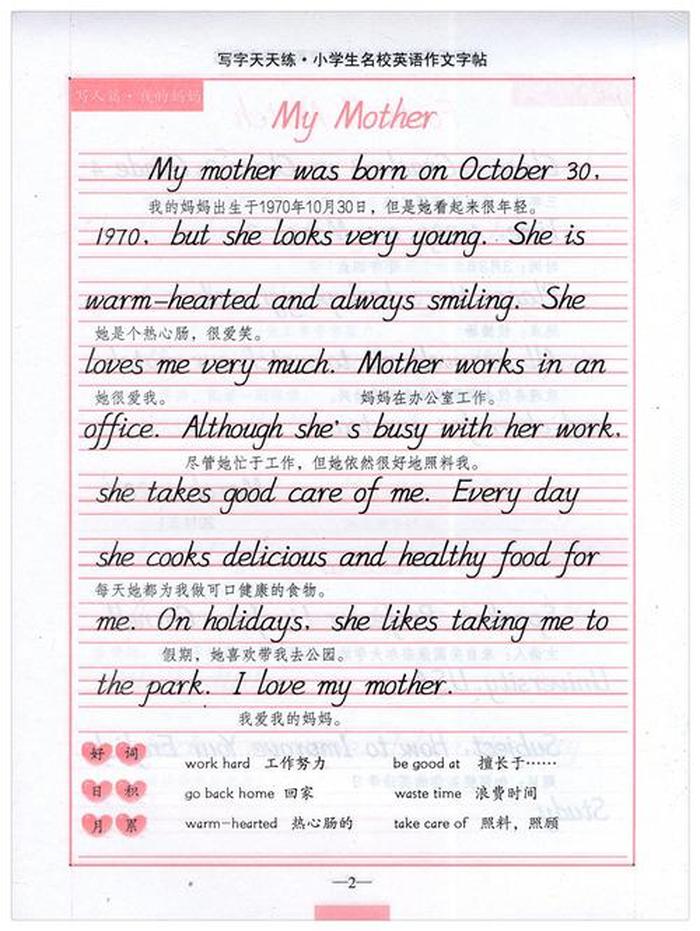 写字天天练·小学生名校英语作文字帖
写人篇·我的妈妈
My Mother
My mother was born on October 30,
我的妈妈出生于1970年10月30日，但是她看起来很年轻。
1970, but she looks very young. She is
warm-hearted and always smiling. She
她是个热心肠，很爱笑。
loves me very much. Mother works in an
她很爱我。 妈妈在办公室工作。
office. Although she's busy with her work,
尽管她忙于工作，但她依然很好地照料我。
she takes good care of me. Every day
she cooks delicious and healthy food for
每天她都为我做可口健康的食物。
me. On holidays, she likes taking me to
假期，她喜欢带我去公园。
the park. I love my mother.
我爱我的妈妈。
好词 work hard 工作努力 be good at 擅长于……
日积 go back home 回家 waste time 浪费时间
月累 warm-hearted 热心肠的 take care of 照料，照顾
—2—